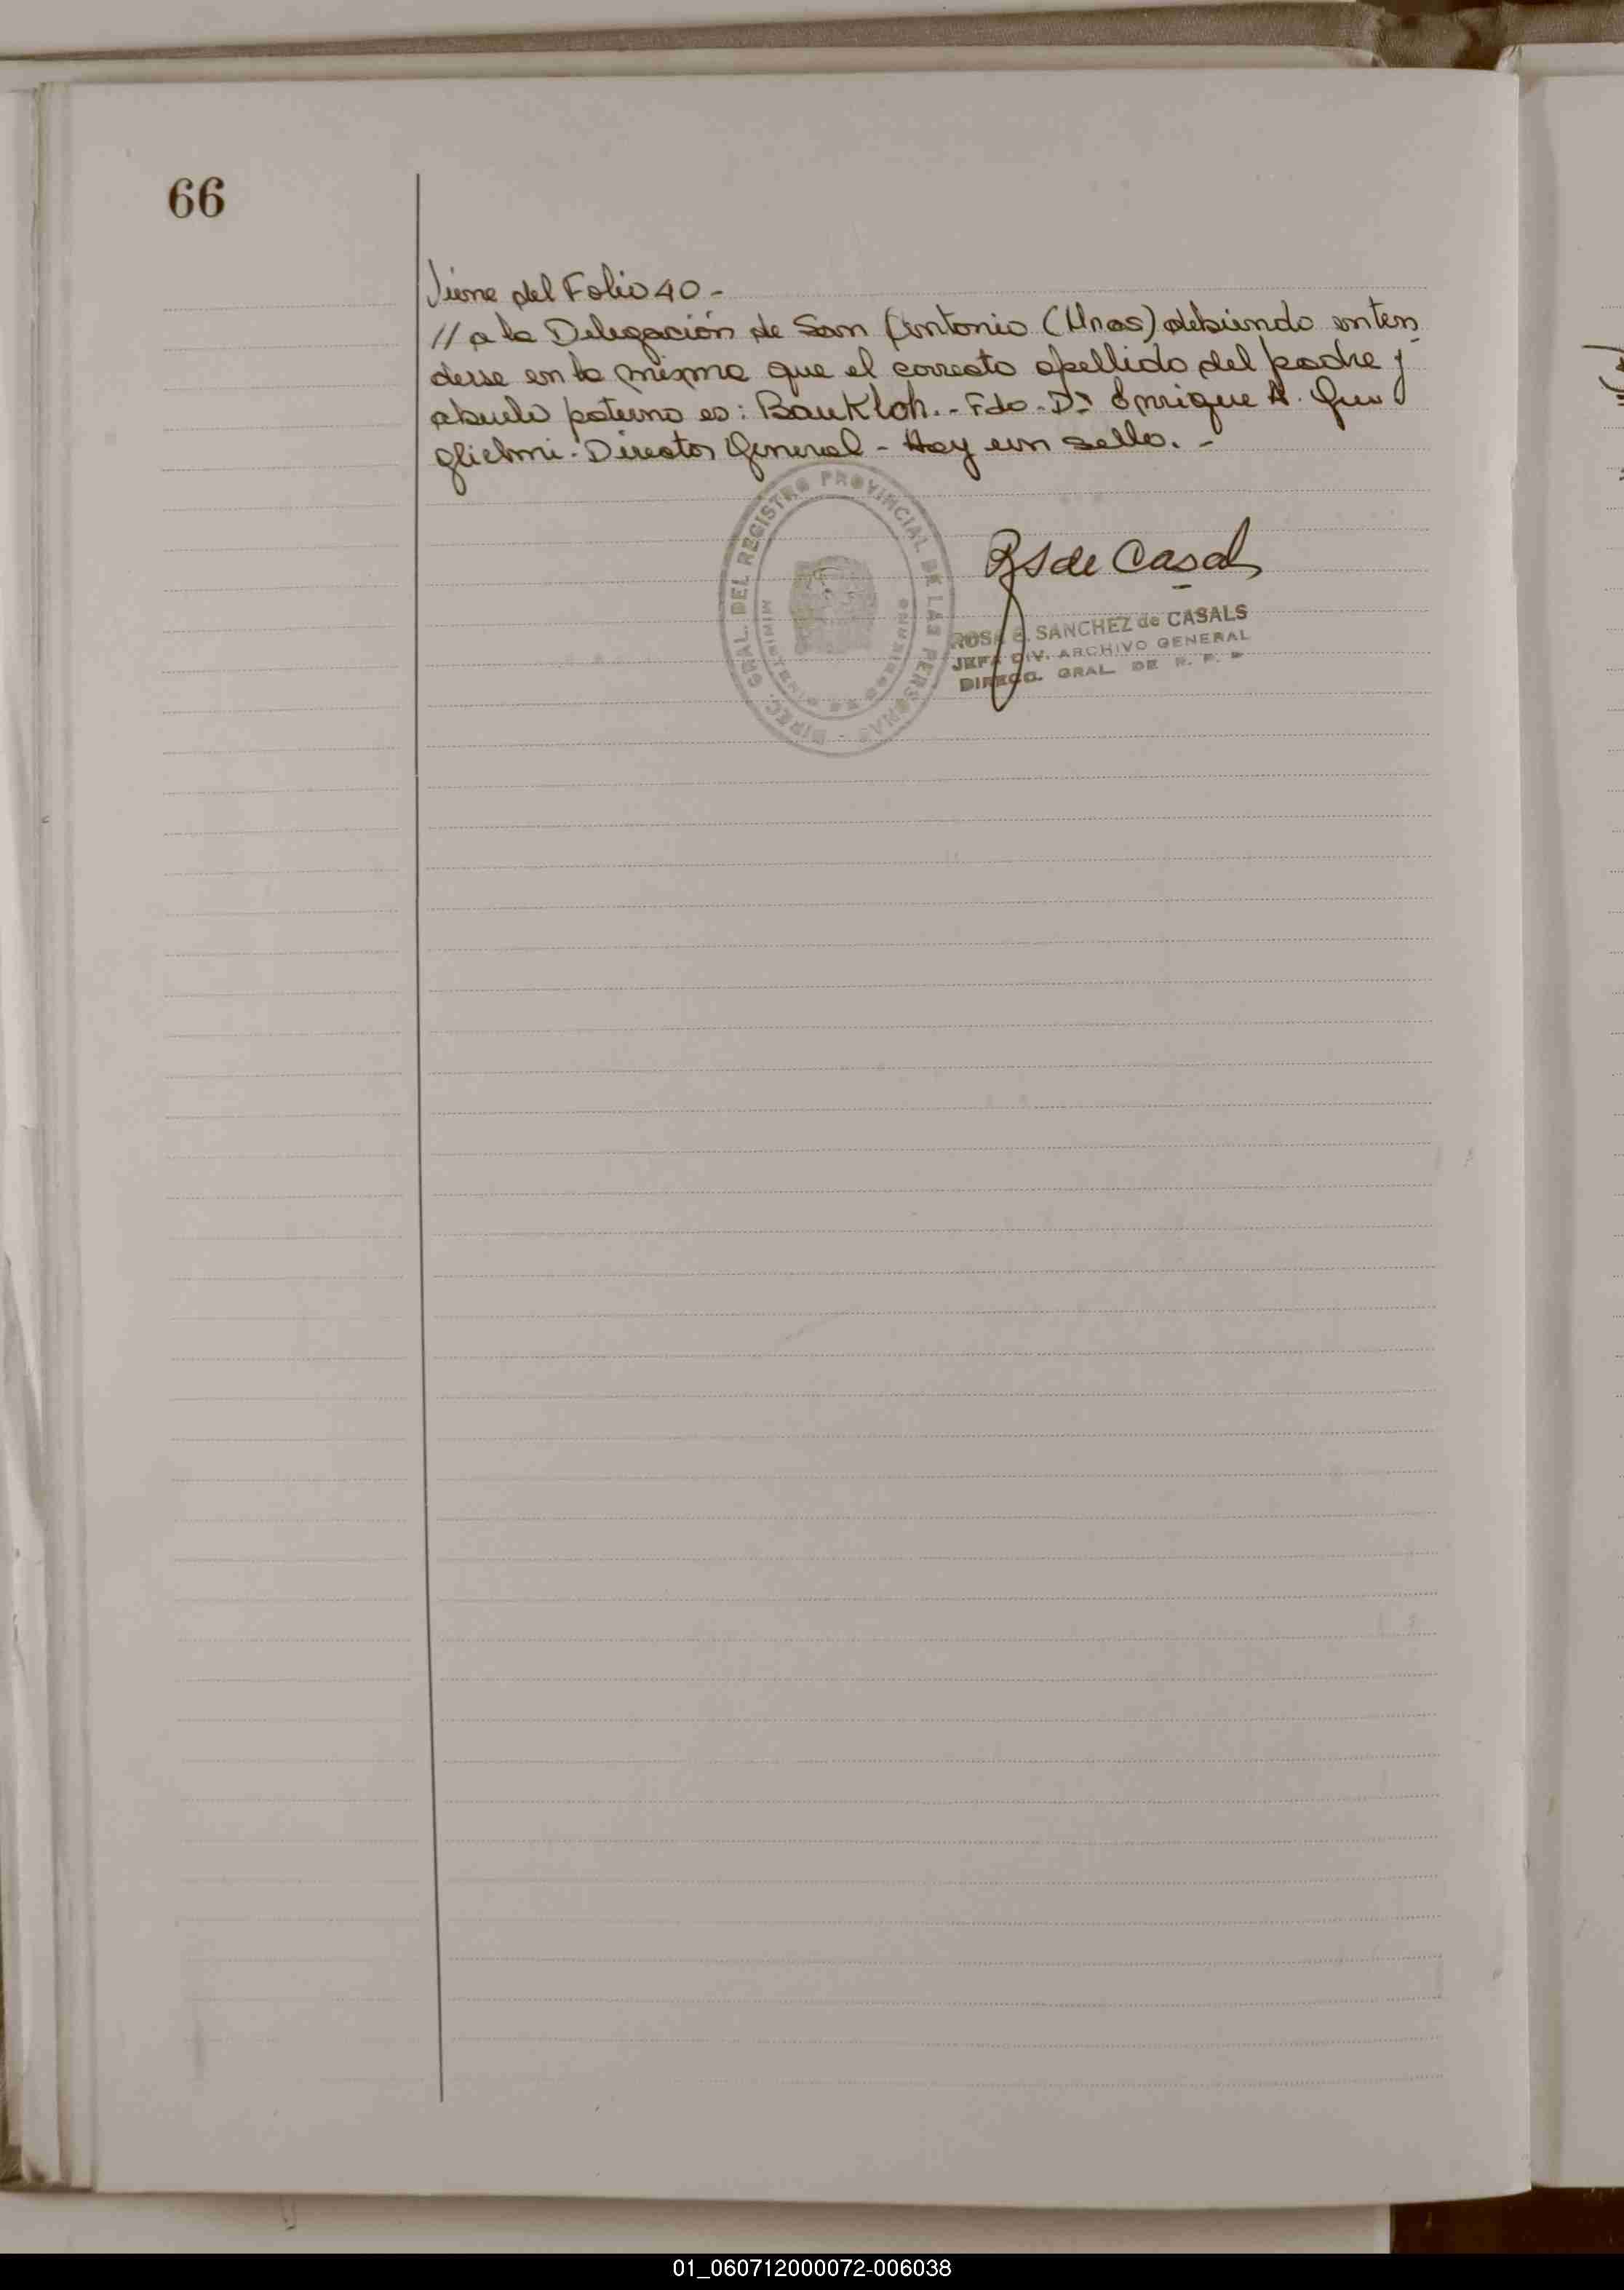 66
Viene del Folio 40 -
// a la Delegación de San Antonio (Mnes) debiendo enten
derse en la misma que el correcto apellido del padre y
abuelo paterno es: BauKloh.- Fdo. Dr Enrique A. Gu
glielmi. Director General - Hay un sello. -
DIREC. GRAL. DEL REGISTRO PROVINCIAL DE LAS PERSONAS
RS de Casals
ROSA E. SANCHEZ de CASALS
JEFA DIV. ARCHIVO GENERAL
DIRECC. GRAL DE R. P. P
01_060712000072-006038